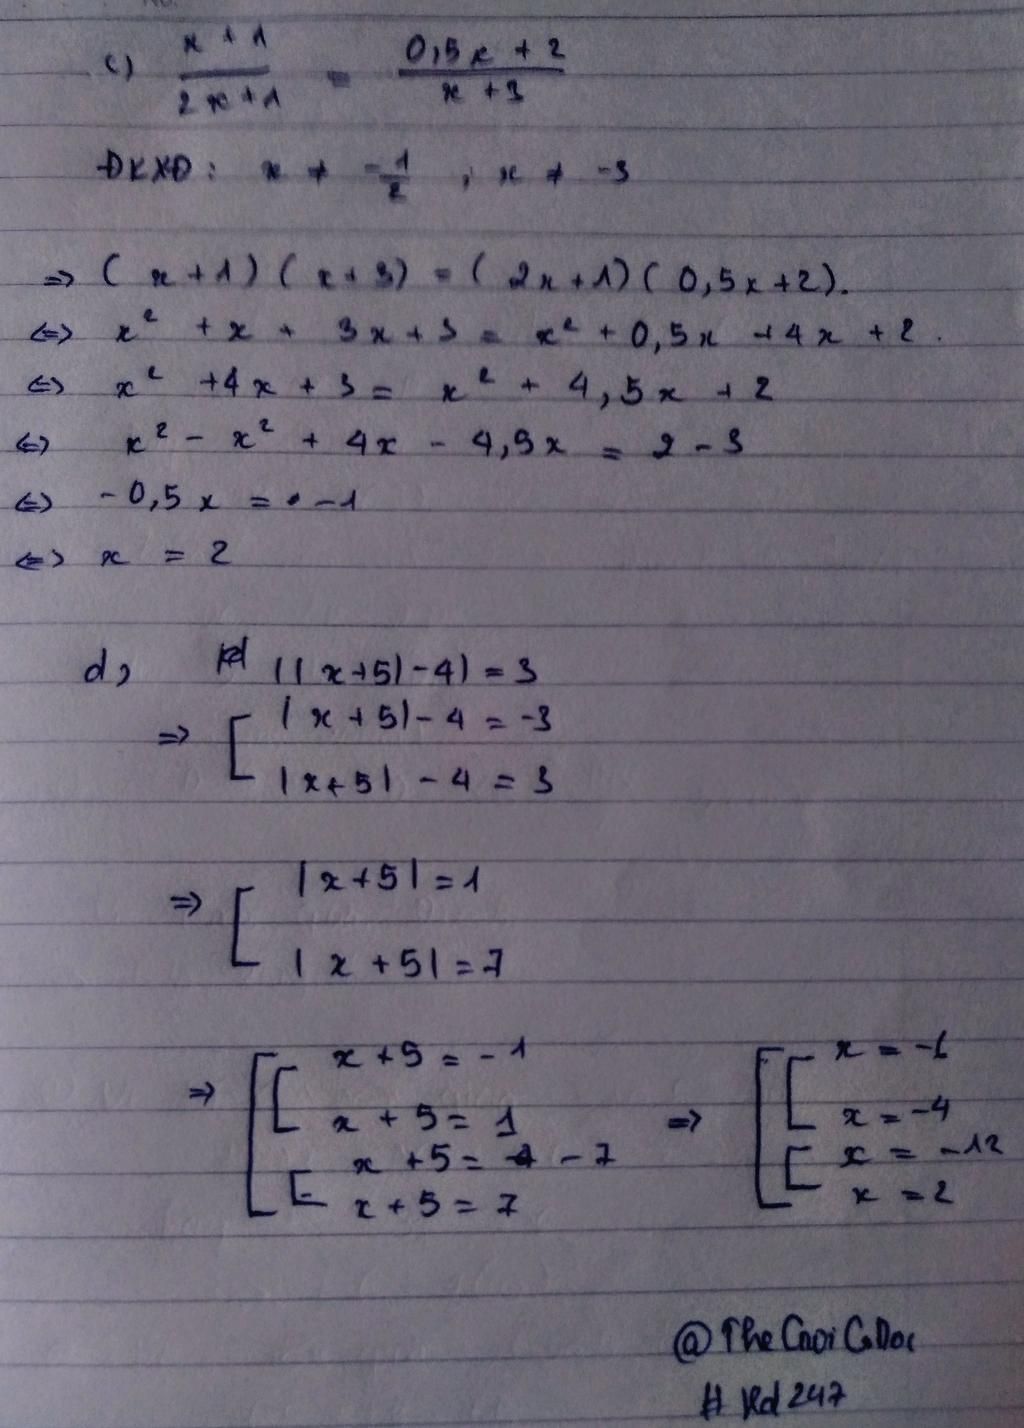 c) x + 1 / 2x + 1 = 0,5x + 2 / x + 3
ĐKXĐ: x ≠ -1/2 , x ≠ -3
=> (x+1)(x+3) = (2x+1)(0,5x+2).
<=> x² + x + 3x + 3 = x² + 0,5x + 4x + 2.
<=> x² + 4x + 3 = x² + 4,5x + 2
<=> x² - x² + 4x - 4,5x = 2 - 3
<=> -0,5x = -1
<=> x = 2
d, ||x+5|-4| = 3
=> [ |x+5| - 4 = -3
|x+5| - 4 = 3
=> [ |x+5| = 1
|x+5| = 7
=> [ [ x+5 = -1 => [ [ x = -6
x+5 = 1 x = -4
[ x+5 = -7 [ x = -12
x+5 = 7 x = 2
# Kd 247